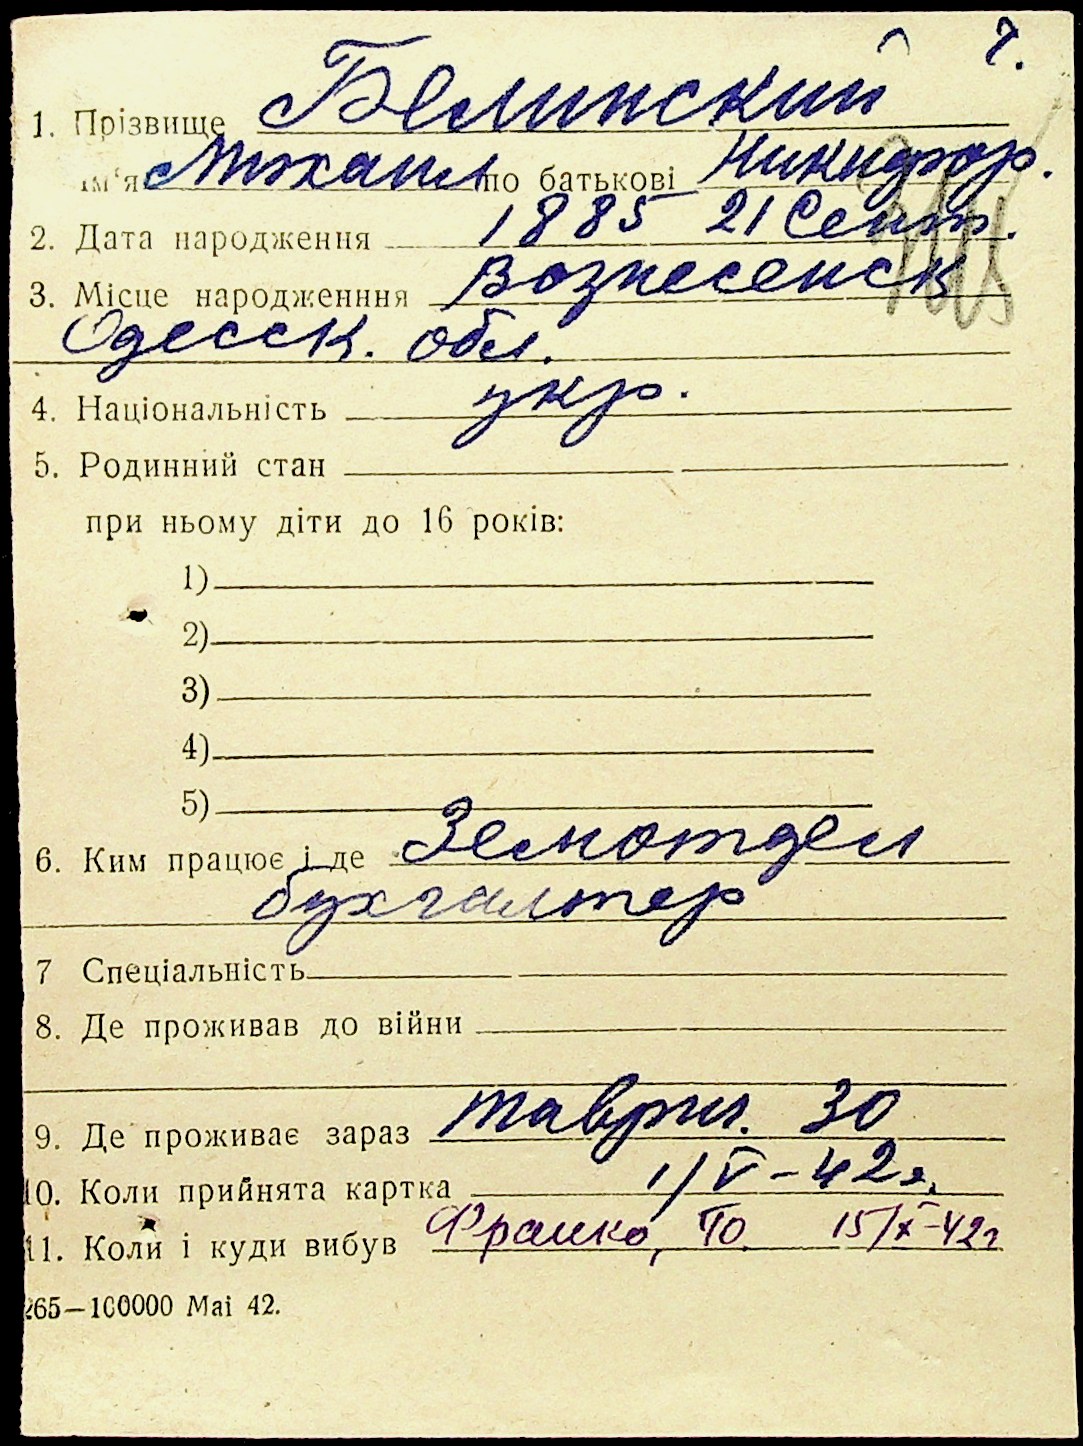 7.
1. Прізвище Белинский
Ім'я Михаил по батькові Никифор.
2. Дата народження 1885 21 Сент.
3. Місце народженння Вознесенск
Одесск. обл.
4. Національність укр.
5. Родинний стан
при ньому діти до 16 років:
1)
2)
3)
4)
5)
6. Ким працює і де Земотдел
бухгалтер
7 Спеціальність
8. Де проживав до війни
9. Де проживає зараз Таврич. 30
10. Коли прийнята картка 1/V-42г.
11. Коли і куди вибув Франко, 10 15/X-42г
265—100000 Mai 42.